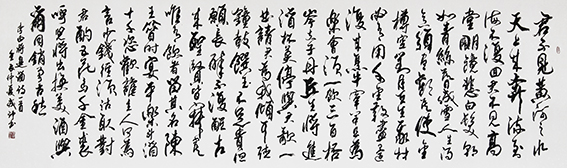 君不見黃河之水
天上來奔流到
海不復回君不見高
堂明鏡悲白髮朝
如青絲暮成雪人生得
意須盡歡莫使金
樽空對月天生我材
必有用千金散盡還
復來烹羊宰牛且
為樂會須一飲三百杯
岑夫子丹丘生將進
酒杯莫停與君歌一
曲請君為我傾耳聽
鐘鼓饌玉不足貴但
願長醉不復醒古
來聖賢皆寂寞
惟有飲者留其名陳
王昔時宴平樂斗酒
十千恣歡謔主人何為
言少錢徑須沽取對
君酌五花馬千金裘
呼兒將出換美酒與
爾同銷萬古愁
李白將進酒詩一首
仲夏